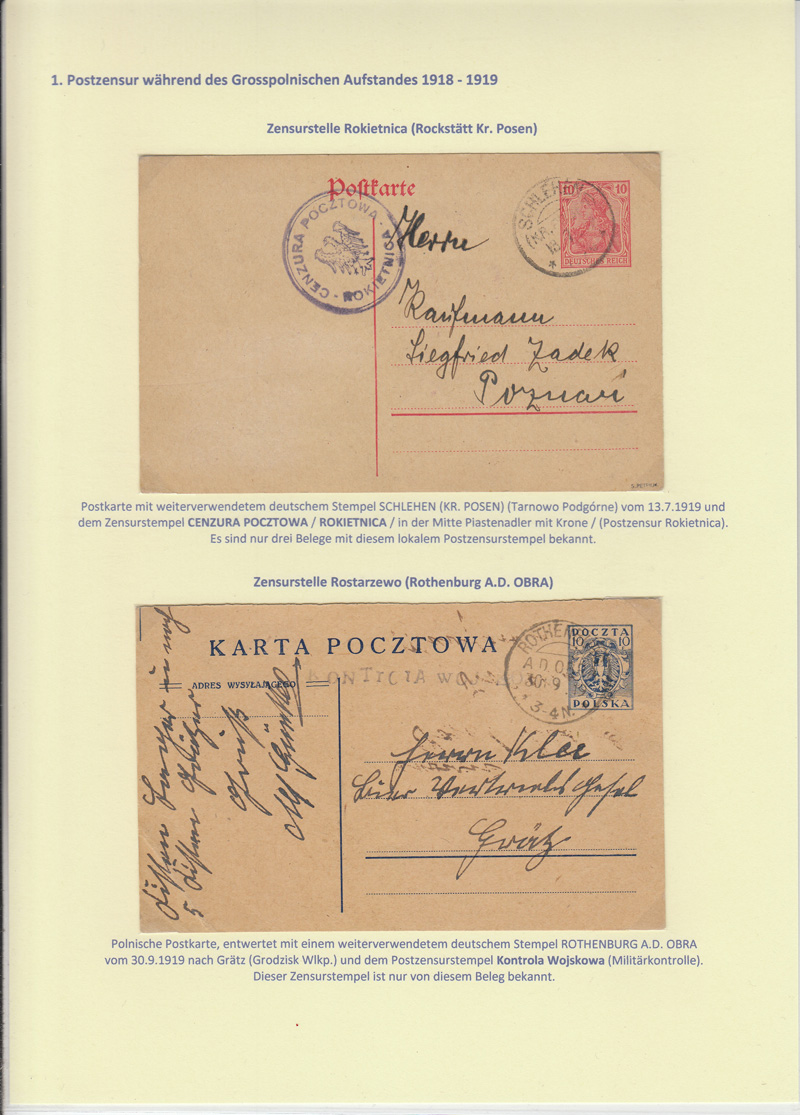 1. Postzensur während des Grosspolnischen Aufstandes 1918 - 1919
Zensurstelle Rokietnica (Rockstätt Kr. Posen)
Postkarte
CENZURA POCZTOWA - ROKIETNICA -
SCHLEHEN
(KR.
10 10
DEUTSCHES REICH
Herrn
Kaufmann
Siegfried Zadek
Poznań
Postkarte mit weiterverwendetem deutschem Stempel SCHLEHEN (KR. POSEN) (Tarnowo Podgórne) vom 13.7.1919 und
dem Zensurstempel CENZURA POCZTOWA / ROKIETNICA / in der Mitte Piastenadler mit Krone / (Postzensur Rokietnica).
Es sind nur drei Belege mit diesem lokalem Postzensurstempel bekannt.
Zensurstelle Rostarzewo (Rothenburg A.D. OBRA)
KARTA POCZTOWA
ADRES WYSYŁAJĄCEGO
ROTHEN
A.D.O.
30.9
3-4N.
POCZTA
10 10
POLSKA
Gruß
Herrn Klee
Bier Vertriebs Gesel
Grätz
Polnische Postkarte, entwertet mit einem weiterverwendetem deutschem Stempel ROTHENBURG A.D. OBRA
vom 30.9.1919 nach Grätz (Grodzisk Wlkp.) und dem Postzensurstempel Kontrola Wojskowa (Militärkontrolle).
Dieser Zensurstempel ist nur von diesem Beleg bekannt.